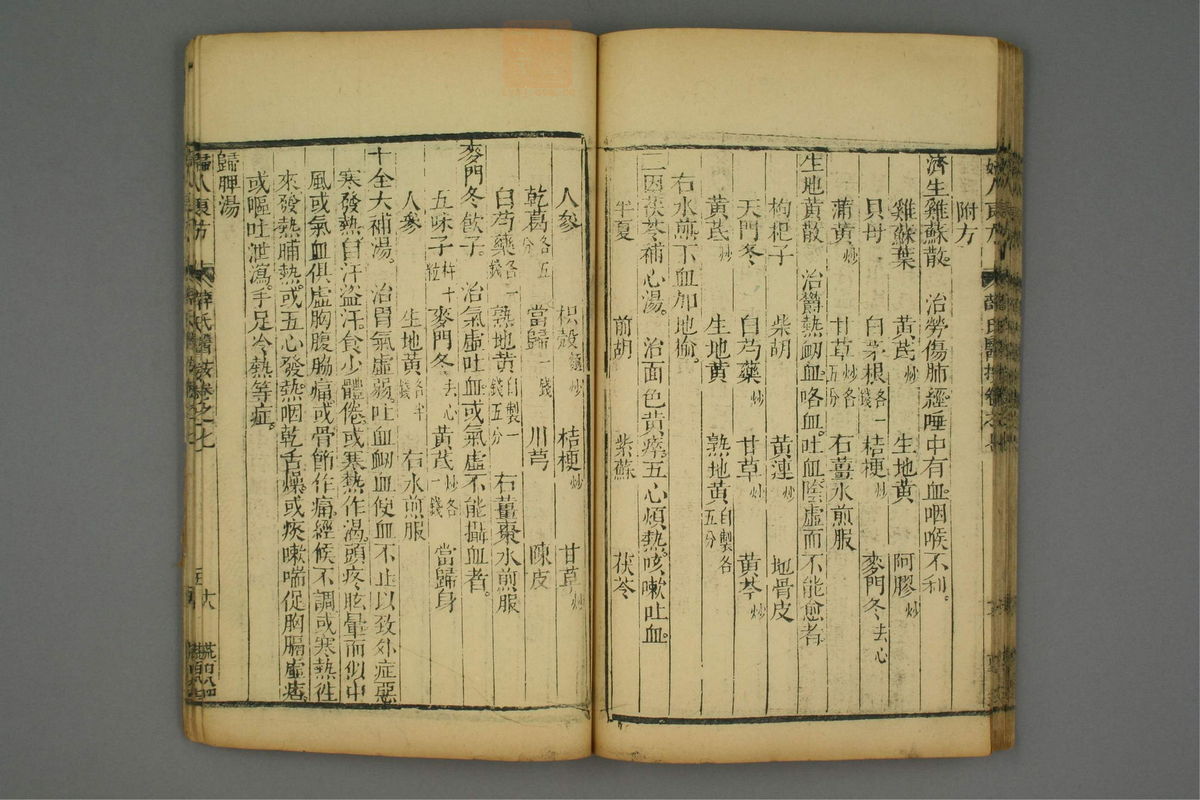 附方
濟生雞蘇散 治勞傷肺經唾中有血咽喉不利。
雞蘇葉 黃芪炒 生地黃 阿膠炒
貝母 白茅根各一錢 桔梗炒 麥門冬去心
蒲黃炒 甘草炒各五分 右薑水煎服
生地黃散 治鬱熱衂血咯血。吐血隂虛而不能愈者。
枸杞子 柴胡 黃連炒 地骨皮
天門冬 白芍藥炒 甘草炒 黃芩炒
黃芪炒 生地黃 熟地黃自製各五分
右水煎下血加地榆。
三因茯苓補心湯。 治面色黃瘁五心煩熱。咳嗽吐血
半夏 前胡 紫蘇 茯苓
人參 枳殼麵炒 桔梗炒 甘草炒
乾葛各五分 當歸一錢 川芎 陳皮
白芍藥各一錢 熟地黃自製一錢五分 右薑棗水煎服
麥門冬飲子。 治氣虛吐血或氣虛不能攝血者。
五味子杵十粒 麥門冬去心 黃芪炒各一錢 當歸身
人參 生地黃各半錢 右水煎服
十全大補湯。 治胃氣虛弱吐血衂血便血不止以致外症惡
寒發熱自汗盜汗。食少體倦。或寒熱作渴。頭疼眩暈而似中
風或氣血俱虛胸腹脇痛或骨節作痛。經候不調或寒熱徃
來發熱晡熱。或五心發熱。咽乾舌燥。或痰嗽喘促胸膈虛痞。
或嘔吐泄瀉。手足冷熱等症。
歸脾湯
人良方 薛氏醫按卷之七